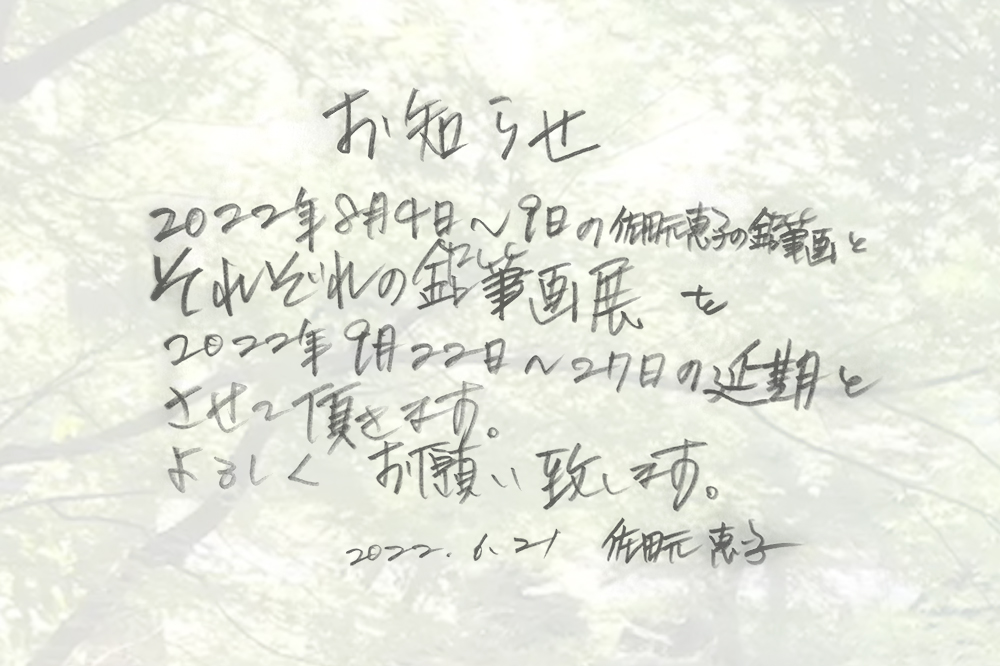 お知らせ
2022年8月4日～9日の佐田元恵子の鉛筆画と
それぞれの鉛筆画展を
2022年9月22日～27日の延期と
させて頂きます。
よろしくお願い致します。
2022.6.21 佐田元恵子